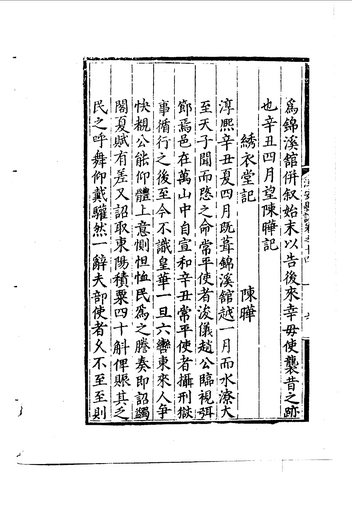 爲錦溪館併叙始末以告後來幸毋使襲昔之跡
也辛丑四月望陳曄記
繡衣堂記
陳曄
淳熙辛丑夏四月既葺錦溪館越一月而水潦大
至天子聞而愍之命常平使者浚儀趙公臨視弭
節焉邑在萬山中自宣和辛丑常平使者攝刑獄
事循行之後至今不識皇華一旦六轡東來人爭
快覩公能仰體上意惻怛恤民爲之謄奏即詔蠲
閣夏賦有差又詔取東陽積粟四十斛俾賑其之
民之呼舞仰戴驩然一辭夫部使者久不至至則